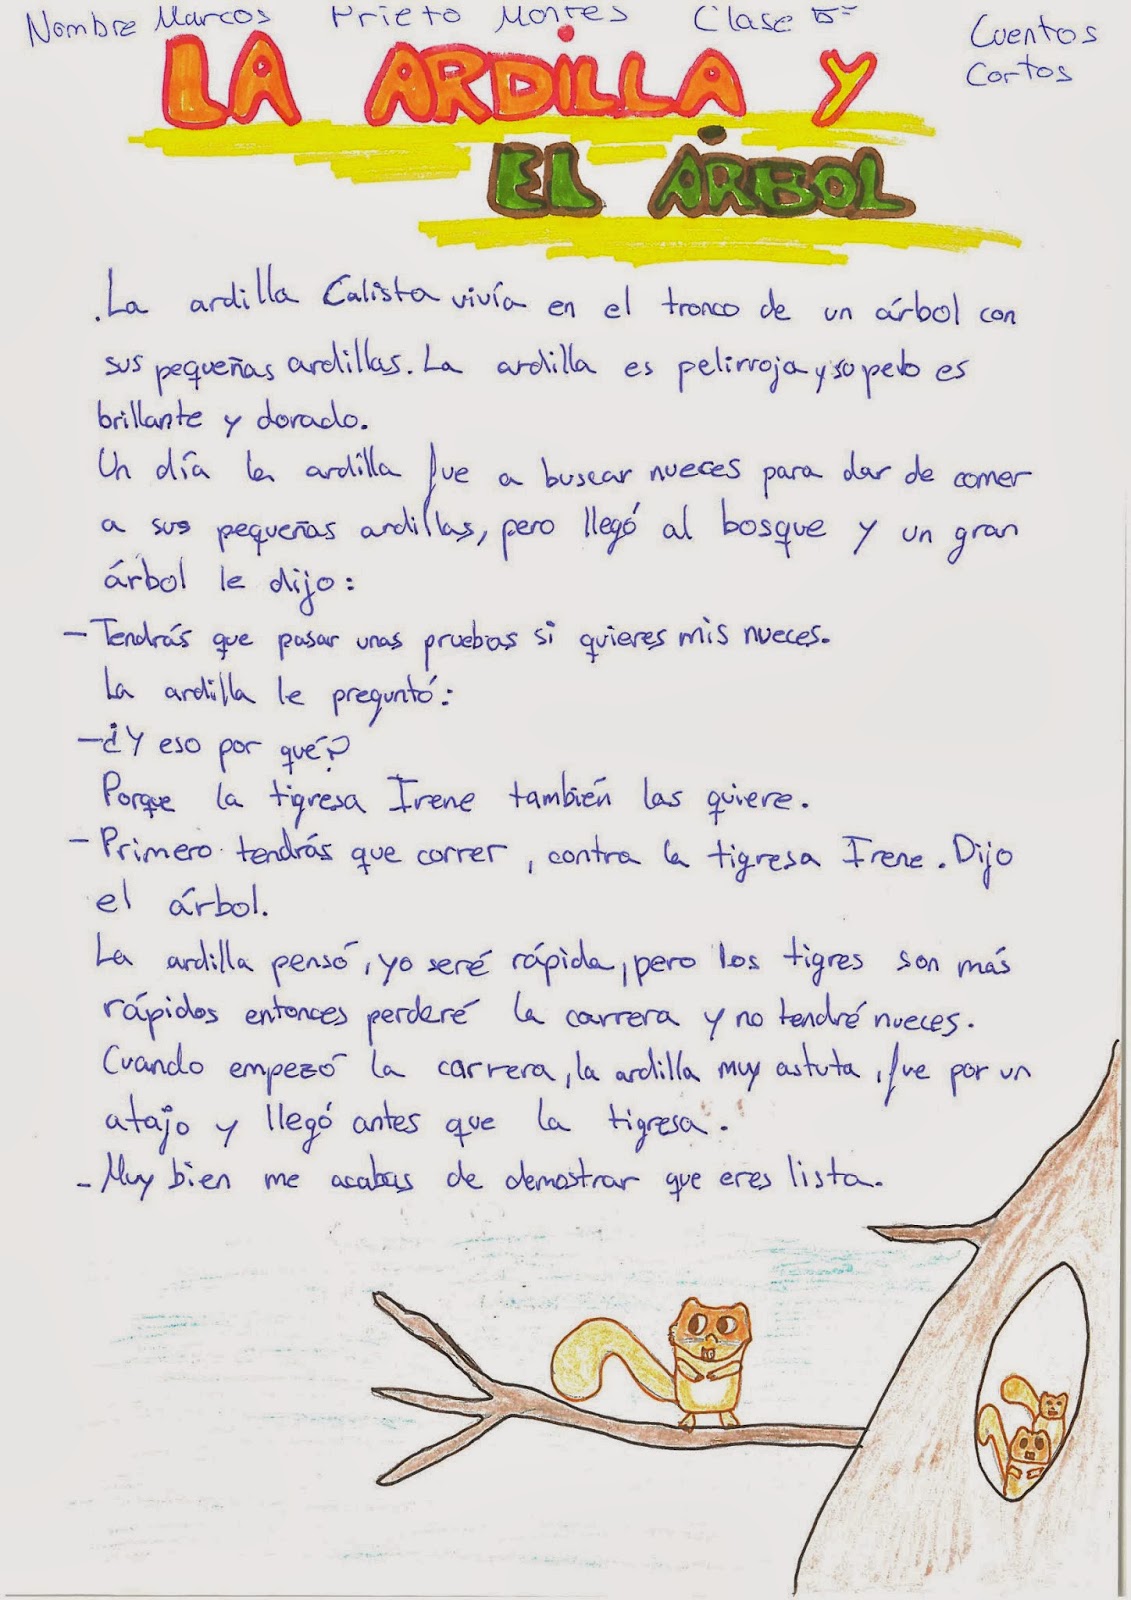 Nombre Marcos Prieto Montes Clase 5º
Cuentos
Cortos
LA ARDILLA Y
EL ÁRBOL
.La ardilla Calista vivía en el tronco de un árbol con
sus pequeñas ardillas. La ardilla es pelirroja y su pelo es
brillante y dorado.
Un día la ardilla fue a buscar nueces para dar de comer
a sus pequeñas ardillas, pero llegó al bosque y un gran
árbol le dijo:
- Tendrás que pasar unas pruebas si quieres mis nueces.
La ardilla le preguntó:
- ¿Y eso por qué?
Porque la tigresa Irene también las quiere.
- Primero tendrás que correr, contra la tigresa Irene. Dijo
el árbol.
La ardilla pensó, yo seré rápida, pero los tigres son más
rápidos entonces perderé la carrera y no tendré nueces.
Cuando empezó la carrera, la ardilla muy astuta, fue por un
atajo y llegó antes que la tigresa.
- Muy bien me acabas de demostrar que eres lista.